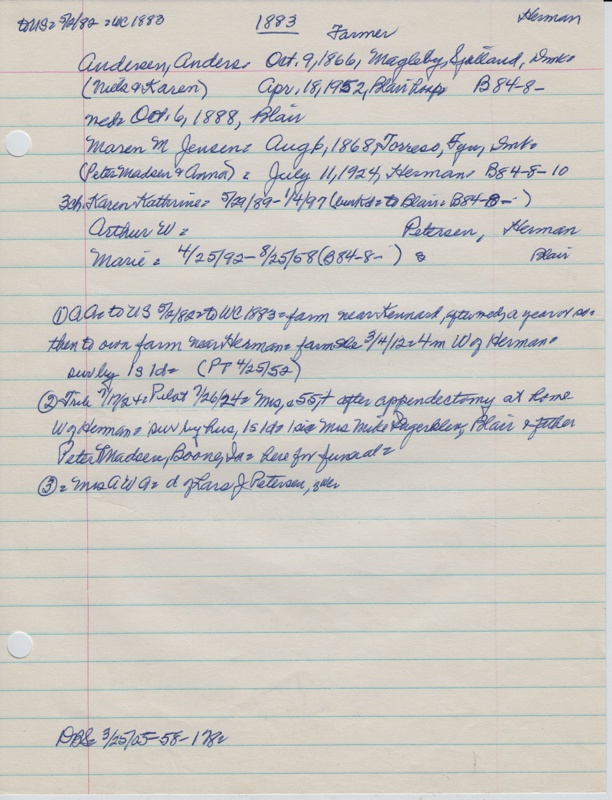 to US= 5/2/82 = WC 1883 1883 Herman
Farmer
Andersen, Anders= Oct. 9, 1866, Magleby, Sjælland, Dmk=
(Niels & Karen) Apr. 18, 1952, Blair Hosp= B84-8-
ned= Oct. 6, 1888, Blair
Maren M Jensen= Aug 6, 1868, Torreso, Fyn, Dmk=
(Peter Madsen & Anna) = July 11, 1924, Herman= B84-8-10
3ch. Karen Kathrine= 5/29/89-1/4/97 ( to Blair= B84-8- )
Arthur W= Petersen, Herman
Marie= 4/25/92-8/25/58 (B84-8- ) Blair
① AA= to US 5/2/82= to WC 1883= farm near Kennard, after med, a year or so=
then to own farm near Herman= farm 3/4/12= 4m W of Herman=
sur by 1s 1d= (PT 4/25/52)
② Trib 7/17/24= Pilot 7/26/24= Mrs, 55+ after appendectomy at home
W of Herman= sur by hus, 1s 1d= 1 sis= Mrs Mike Blair & father
Peter Madsen, Boone, Ia= here for funeral=
③= Mrs AWA= d of Lars J. Petersen,
DBS= 3/25/05-58-178=